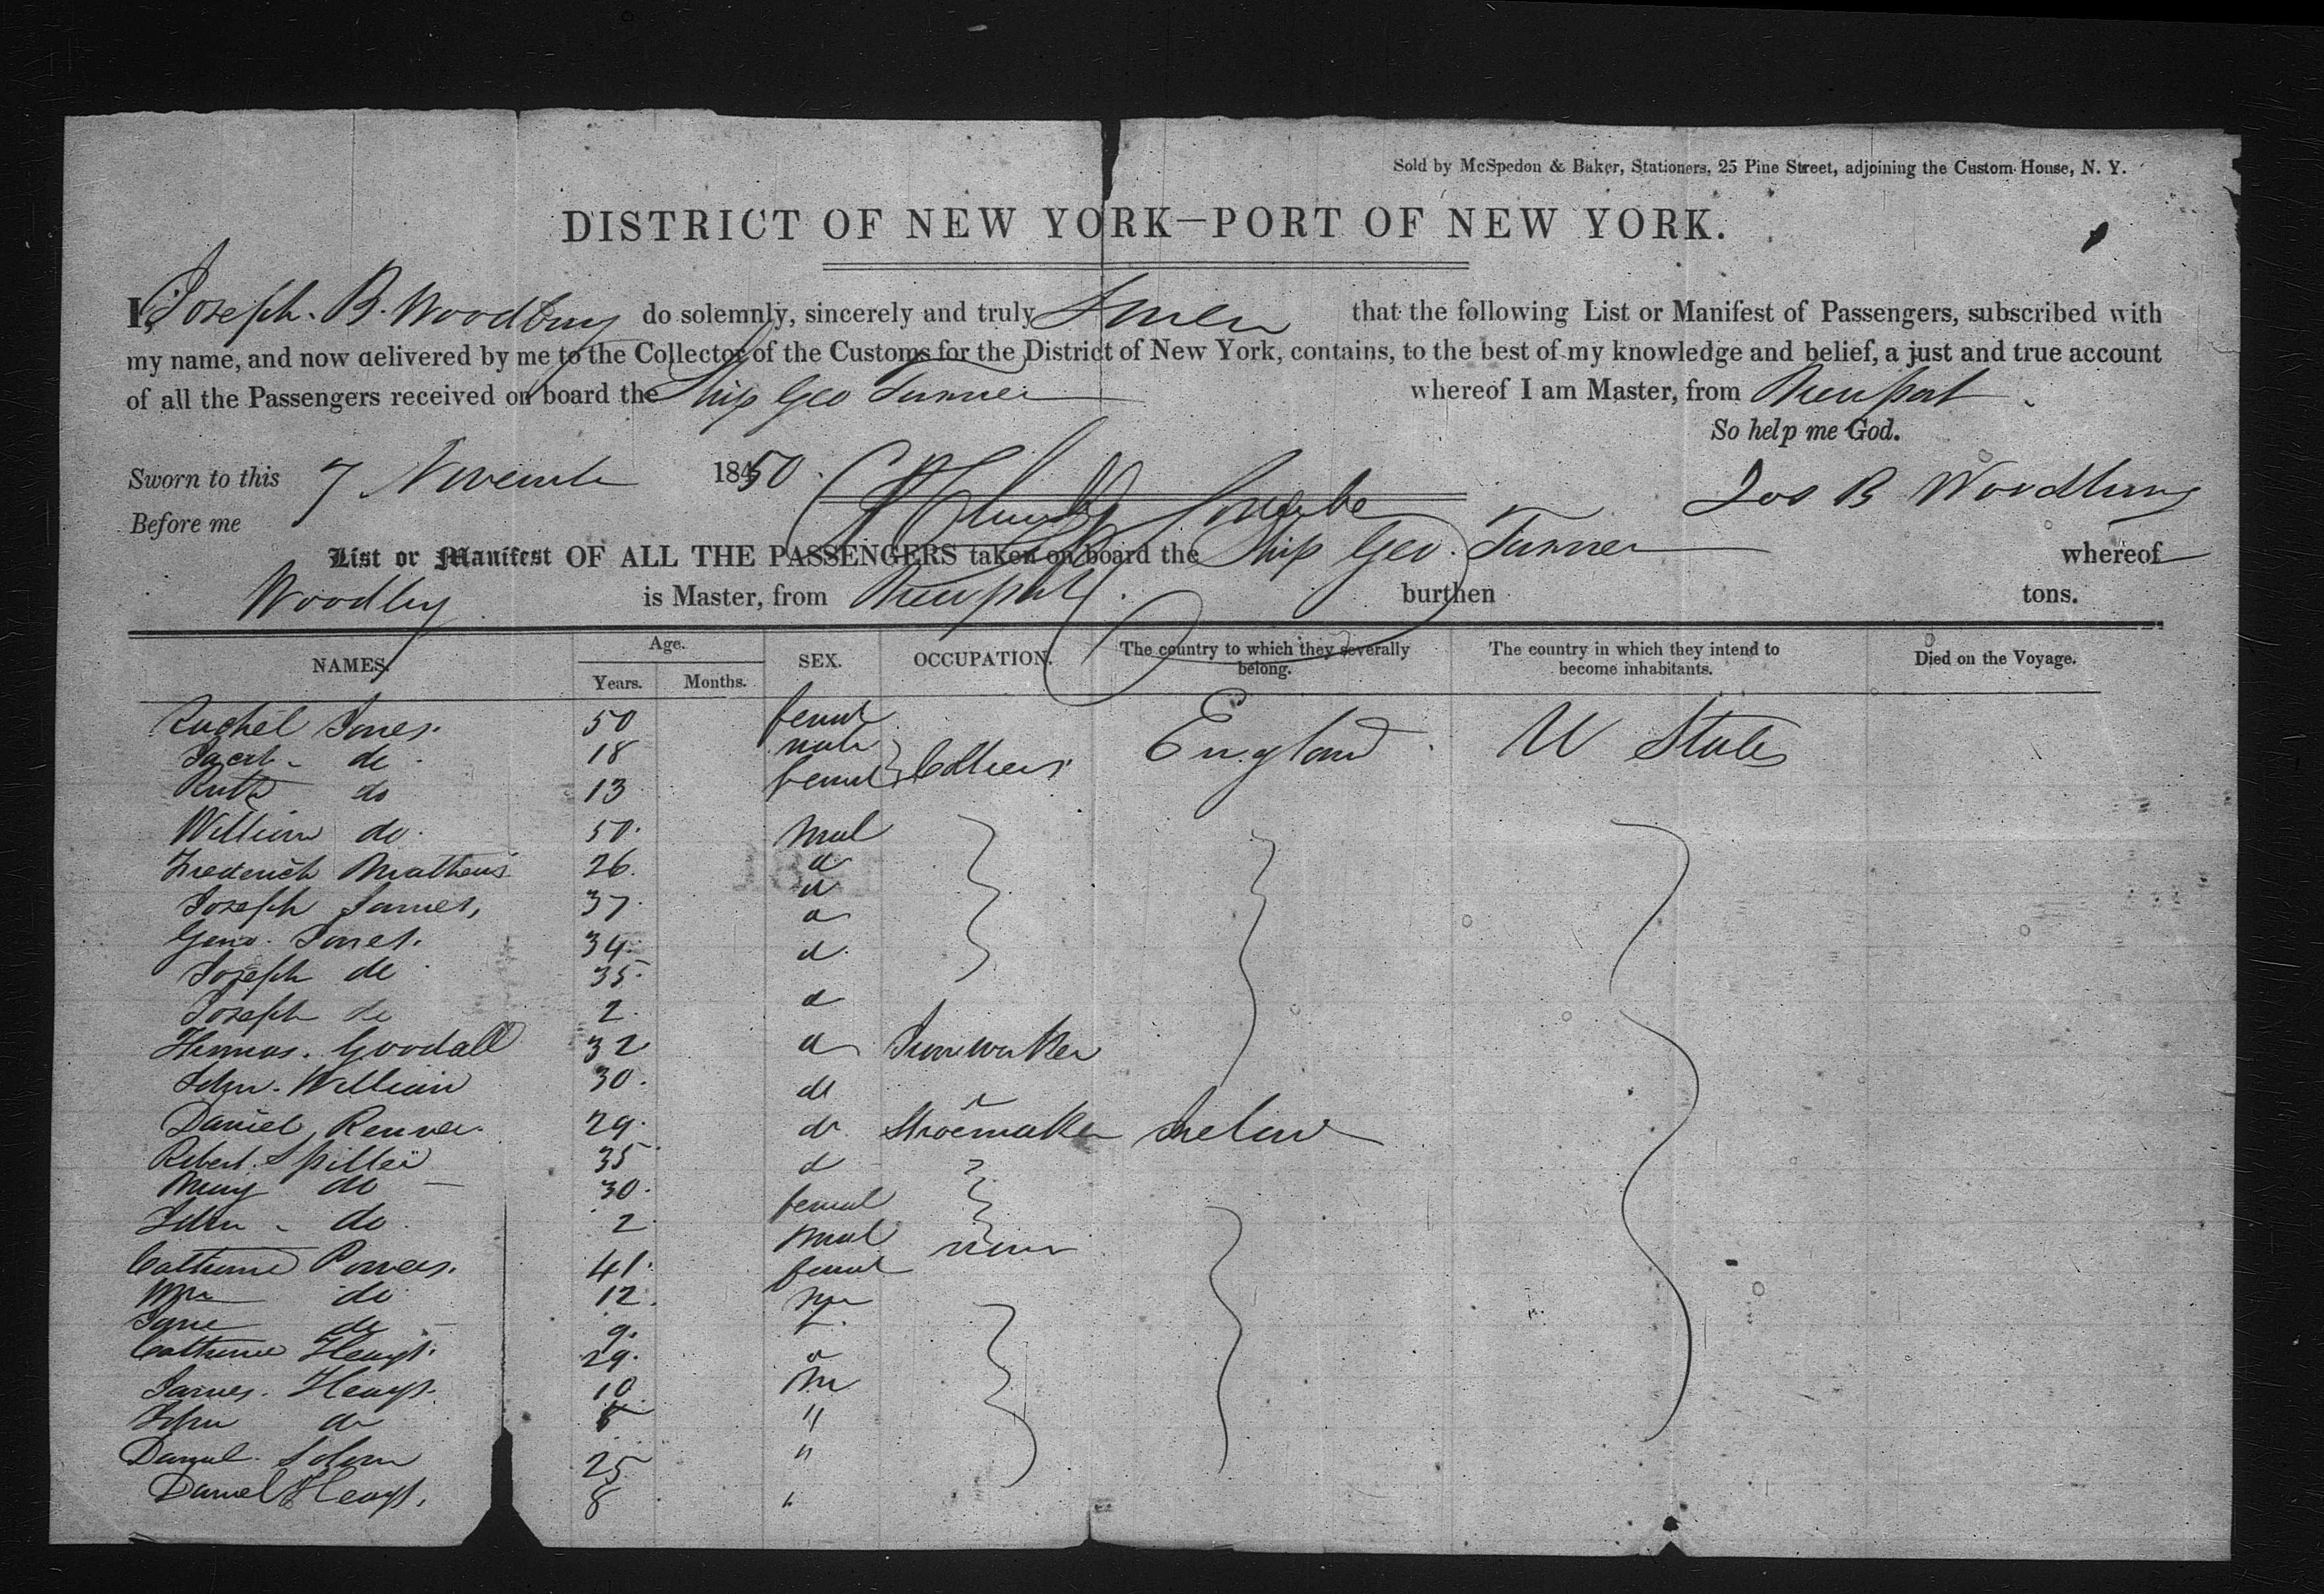 Sold by McSpedon & Baker, Stationers, 25 Pine Street, adjoining the Custom House, N. Y.
DISTRICT OF NEW YORK—PORT OF NEW YORK.
I, Joseph. B. Woodbury do solemnly, sincerely and truly Swear that the following List or Manifest of Passengers, subscribed with
my name, and now delivered by me to the Collector of the Customs for the District of New York, contains, to the best of my knowledge and belief, a just and true account
of all the Passengers received on board the Ship Geo Turner whereof I am Master, from Newport
So help me God.
Sworn to this 7 November 1850. Jos B Woodbury
Before me
List or Manifest OF ALL THE PASSENGERS taken on board the Ship Geo. Turner whereof
Woodby is Master, from Newport. burthen tons.
NAMES. Age. Years. Months. SEX. OCCUPATION. The country to which they severally belong. The country in which they intend to become inhabitants. Died on the Voyage.
Rachel Jones. 50 femal England U States
Jacob do 18 male
Ruth do 13 femal
William do. 50. Mal
Frederick Mathews 26.
Joseph James, 37.
Geno. Jones. 34.
Joseph do 35.
Joseph do 2.
Thomas. Goodall 32
John. William 30. do
Daniel 29. do Shoemaker Irelan
Robert. Spiller 35
Mary do 30. femal
John do. 2 Mal
Catherine Powers. 41. femal
Wm do 12. M
Jane do 9. F.
Catherine 29.
James. 10 M
John do 8 "
Daniel. 25 "
Daniel 8 "